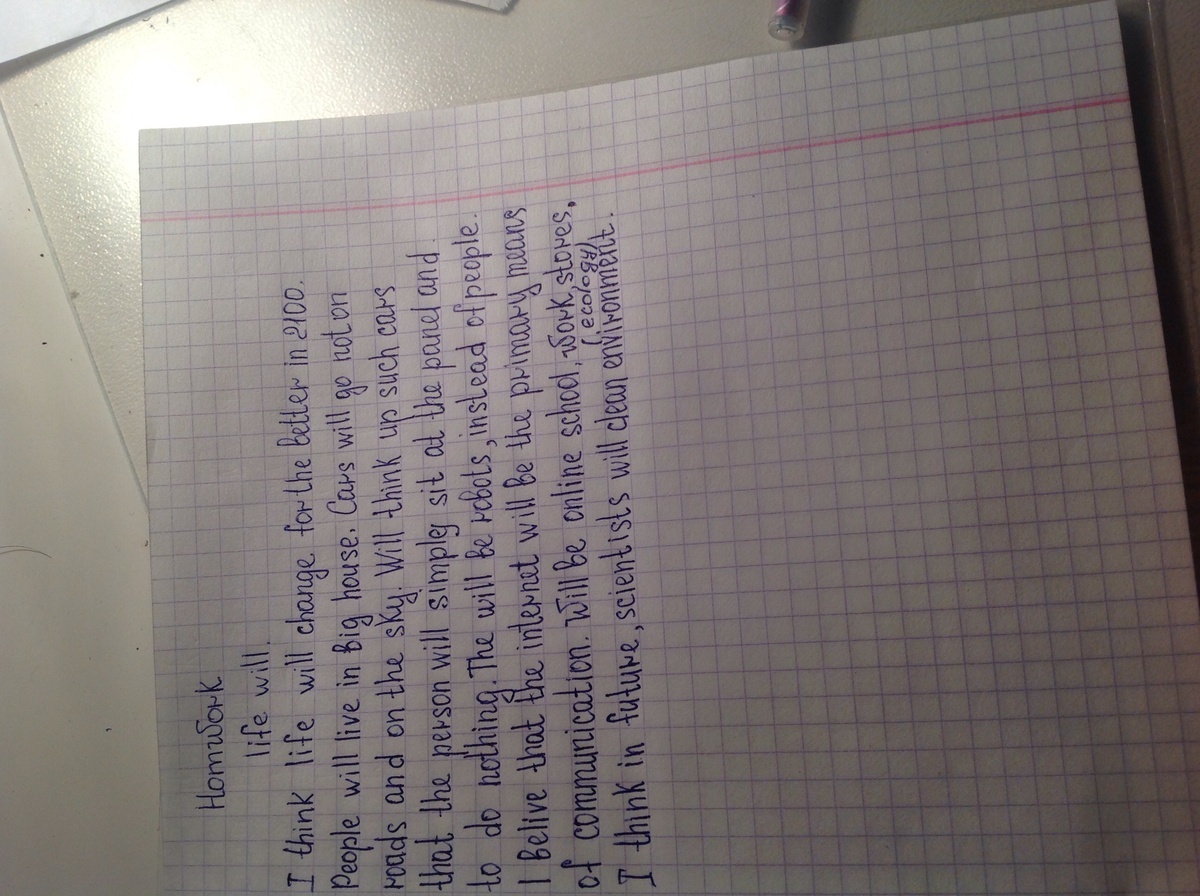 Homwork
life will.
I think life will change for the better in 2100.
People will live in Big house. Cars will go not on
roads and on the sky. Will think up such cars
that the person will simpley sit at the panel and
to do nothing. The will be robots, instead of people.
I Belive that the internet will be the primary means
of communication. Will be online school, work, stores.
(ecology)
I think in future, scientists will clean environment.